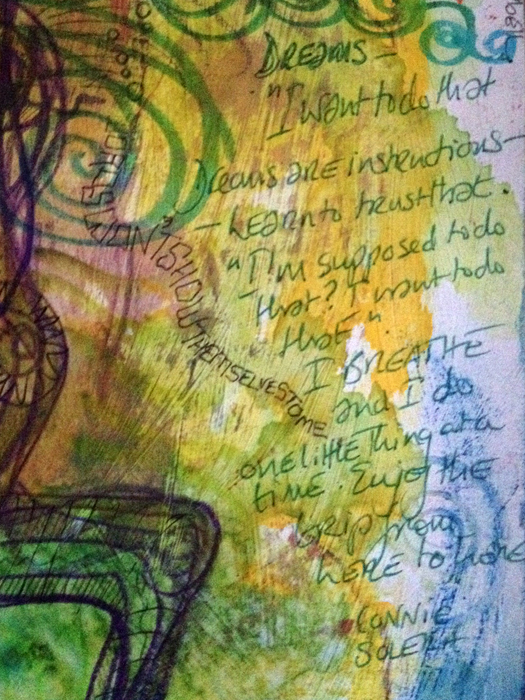 DREAMS —
"I want to do that
Dreams are instructions —
— LEARN to trust that.
"I'm supposed to do
that? I want to do
that".
I BREATHE
and I do
one little thing at a
time. Enjoy THE
trip from
HERE TO
CONNIE
SHOW THEMSELVES TO ME